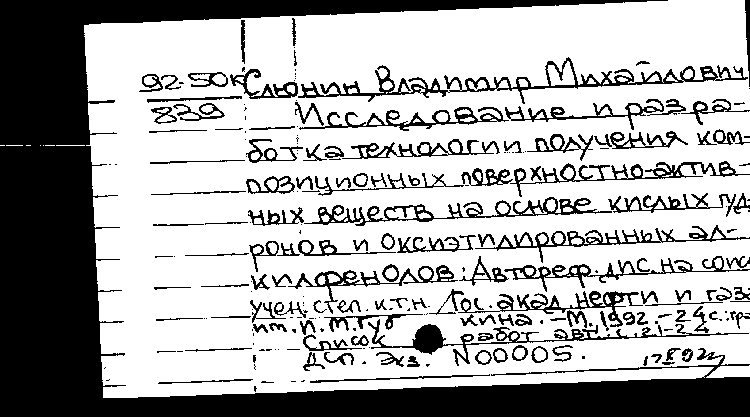 92-50к Слюнин, Владимир Михайлович
839 Исследование и разра-
ботка технологии получения ком-
позиционных поверхностно-актив-
ных веществ на основе кислых гуд-
ронов и оксиэтилированных ал-
килфенолов: Автореф. дис. на соиск
учен. степ. к.т.н. / Гос. акад. нефти и газа
им. И. М. Губкина. - М., 1992. - 24 с.: гра
Список работ авт.: с. 21-24
ДСП. Экз. N00005.